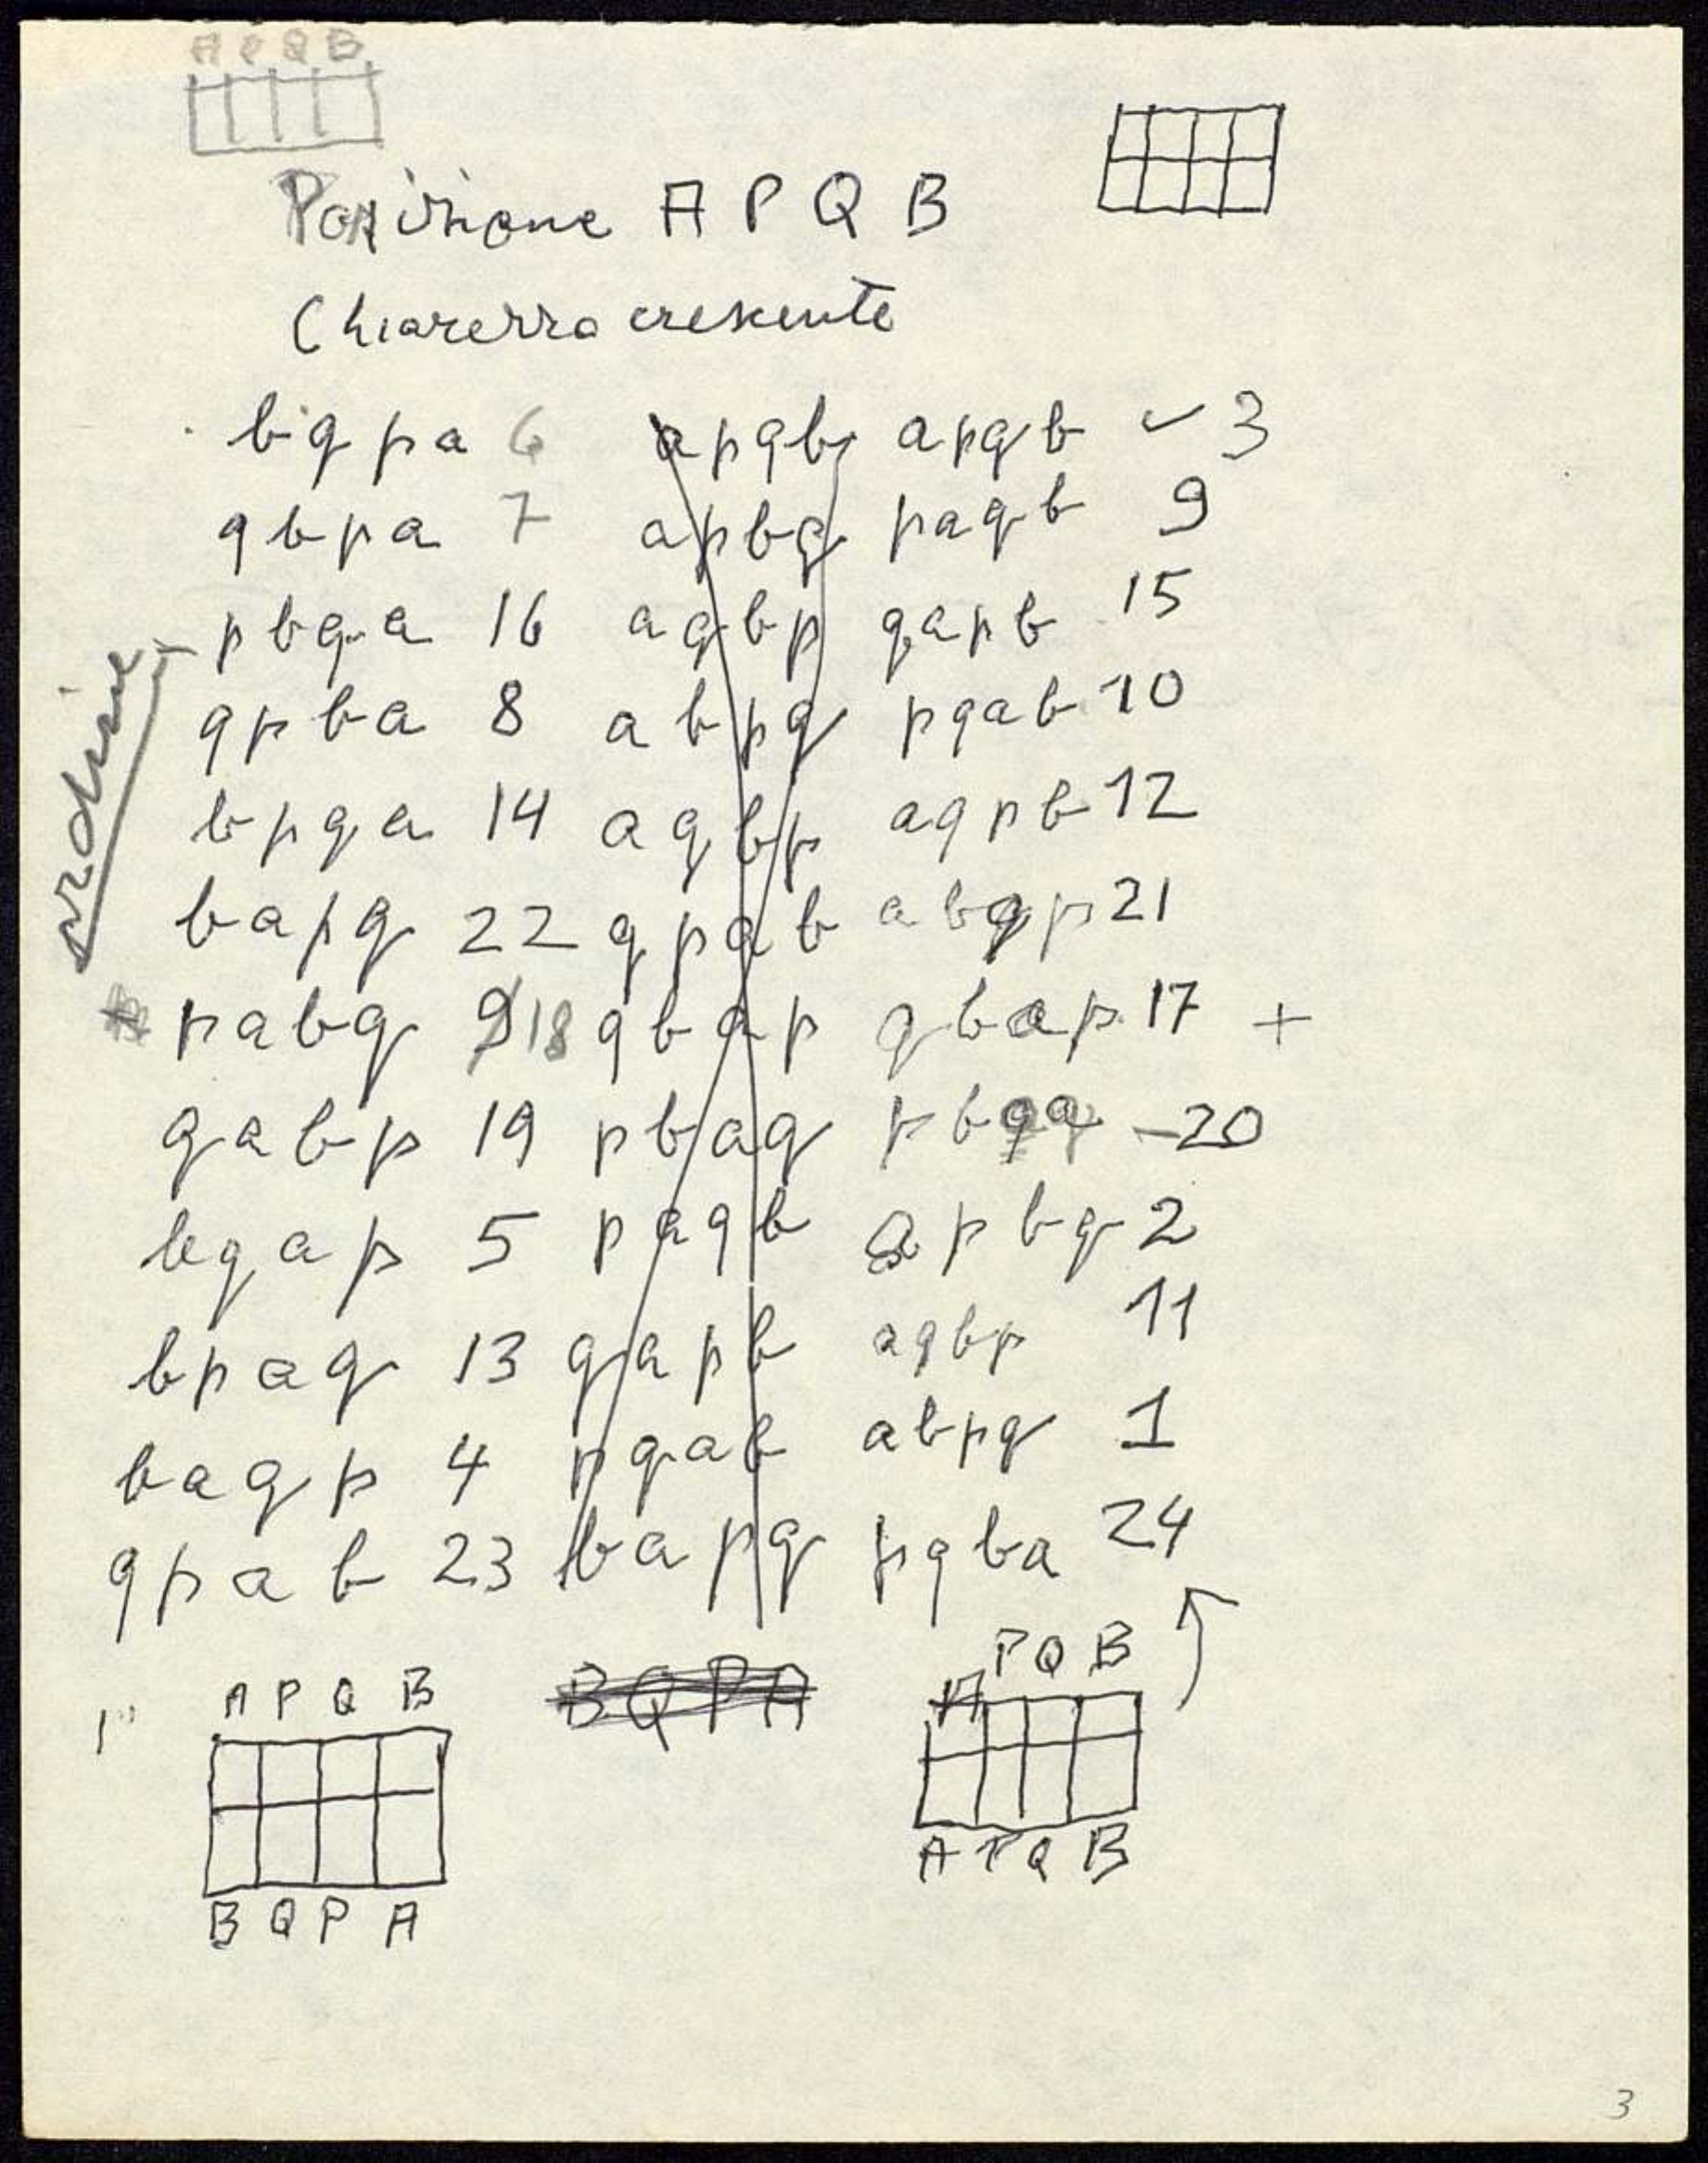 A P Q B
Posizione A P Q B
Chiarezza crescente
b q p a 6 apqb apqb ✓ 3
q b p a 7 apbq paqb 9
p b q a 16 aqbp qapb 15
q p b a 8 abpq pqab 10
b p q a 14 aqbp aqpb 12
b a p q 22 qpab abqp 21
p a b q 9 18 qbap qbap 17 +
q a b p 19 pbaq pb – 20
b q a p 5 paqb apbq 2
b p a q 13 qapb aqbp 11
b a q p 4 pqab abpq 1
q p a b 23 bapq pqba 24
ordine
1°
A P Q B
B Q P A
B Q P A
A P Q B
A P Q B
3